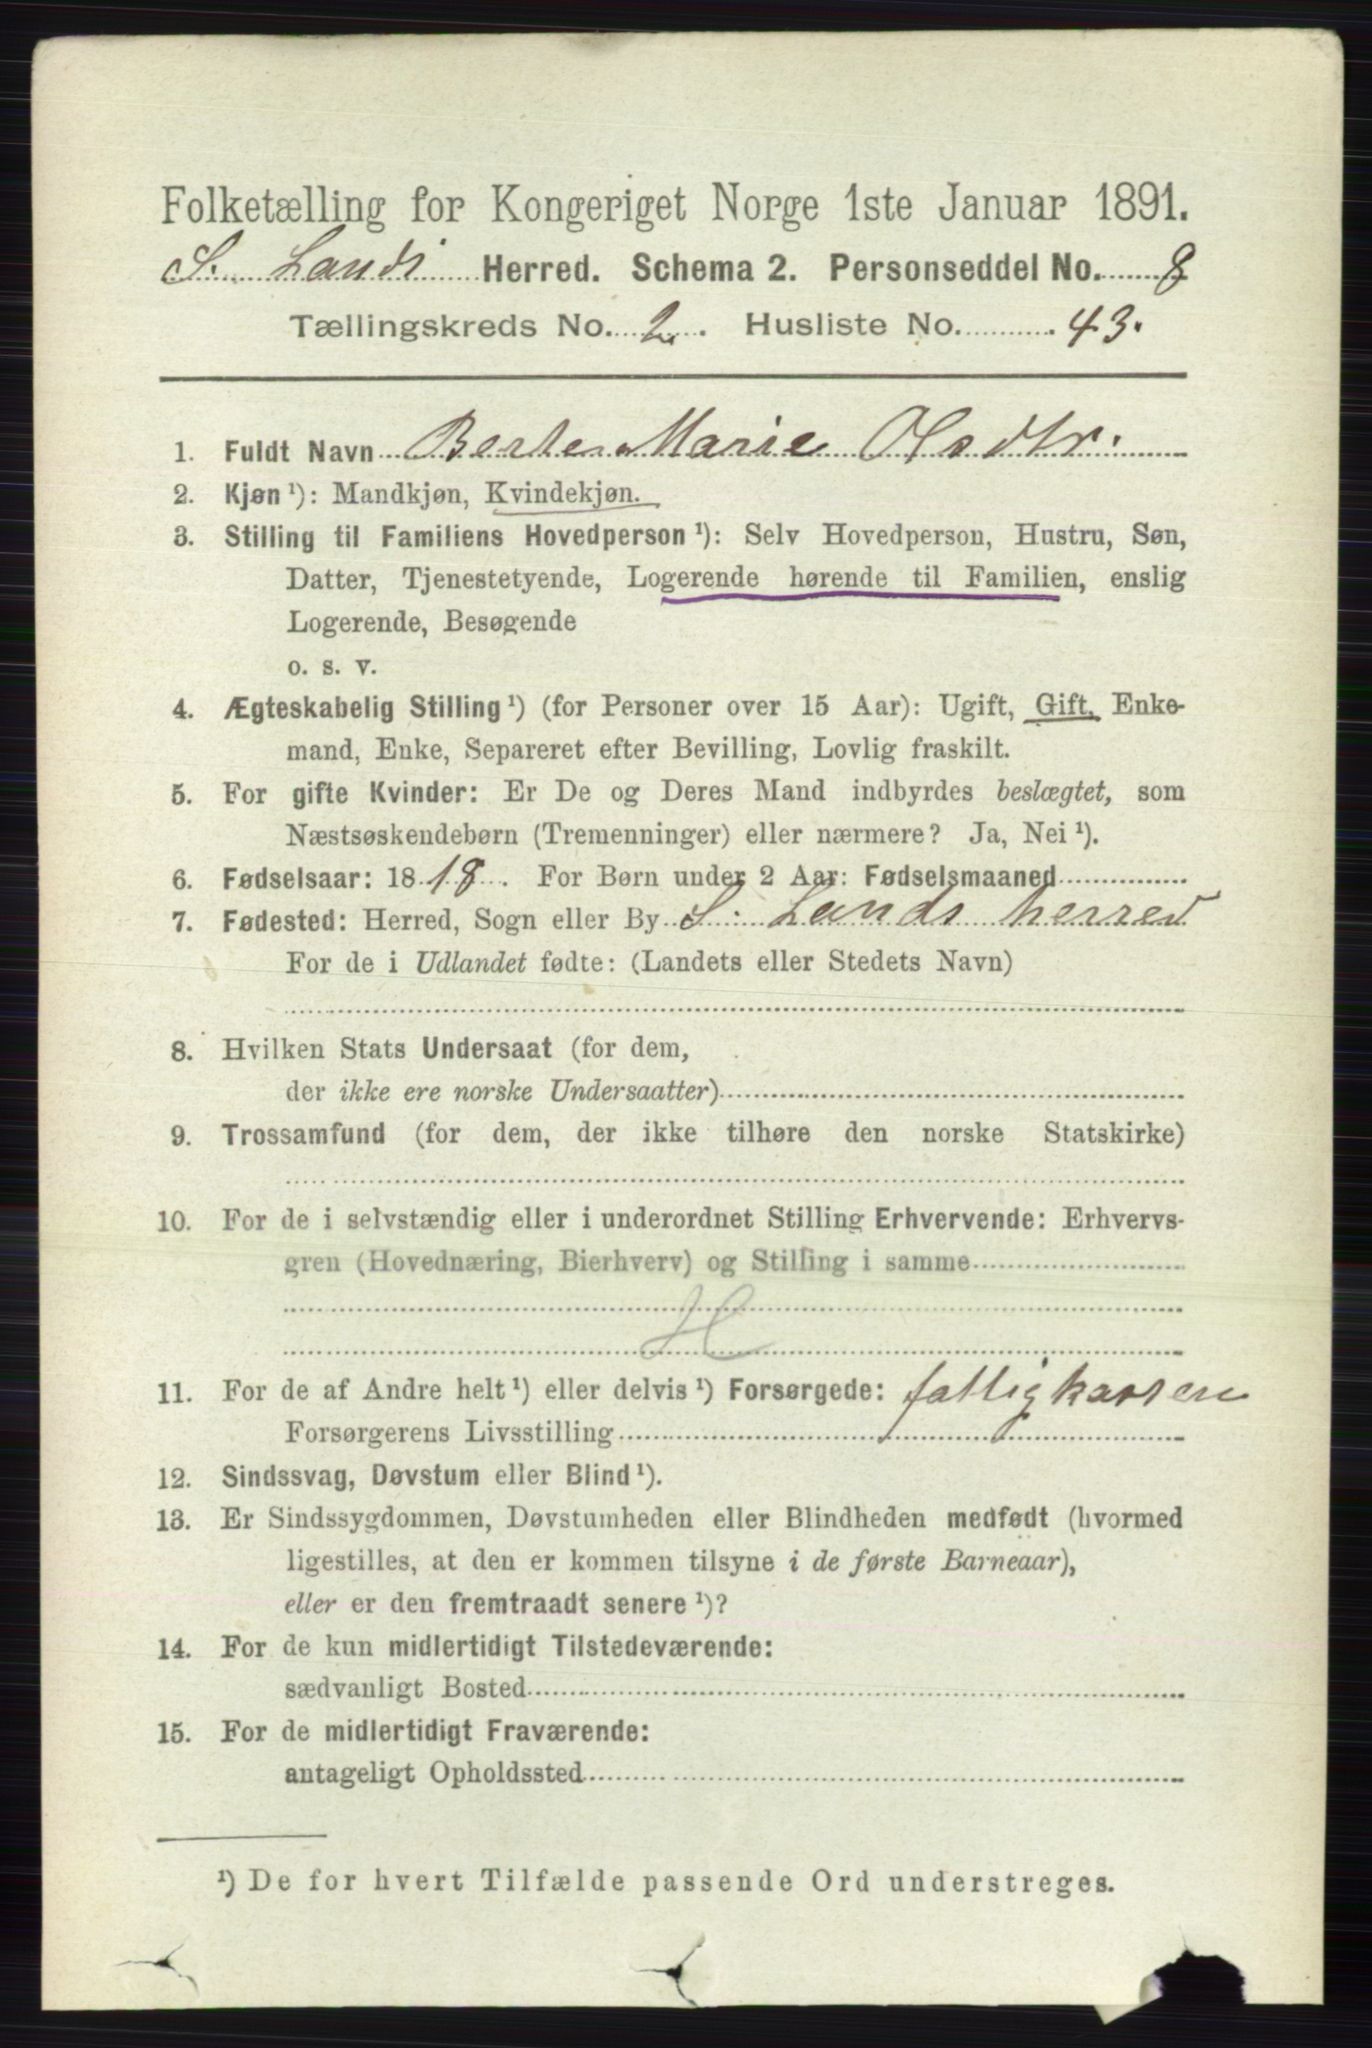 Folketælling for Kongeriget Norge 1ste Januar 1891.
S. Lands Herred. Schema 2. Personseddel No. 8
Tællingskreds No. 2. Husliste No. 43.
1. Fuldt Navn Berte Marie Olsdtr.
2. Kjøn ¹): Mandkjøn, Kvindekjøn.
3. Stilling til Familiens Hovedperson ¹): Selv Hovedperson, Hustru, Søn,
Datter, Tjenestetyende, Logerende hørende til Familien, enslig
Logerende, Besøgende
o. s. v.
4. Ægteskabelig Stilling ¹) (for Personer over 15 Aar): Ugift, Gift, Enke-
mand, Enke, Separeret efter Bevilling, Lovlig fraskilt.
5. For gifte Kvinder: Er De og Deres Mand indbyrdes beslægtet, som
Næstsøskendebørn (Tremenninger) eller nærmere? Ja, Nei ¹).
6. Fødselsaar: 1818. For Børn under 2 Aar: Fødselsmaaned
7. Fødested: Herred, Sogn eller By S. Lands herred
For de i Udlandet fødte: (Landets eller Stedets Navn)
8. Hvilken Stats Undersaat (for dem,
der ikke ere norske Undersaatter)
9. Trossamfund (for dem, der ikke tilhøre den norske Statskirke)
10. For de i selvstændig eller i underordnet Stilling Erhvervende: Erhvervs-
gren (Hovednæring, Bierhverv) og Stilling i samme
H
11. For de af Andre helt ¹) eller delvis ¹) Forsørgede: fattigkassen
Forsørgerens Livsstilling
12. Sindssvag, Døvstum eller Blind ¹).
13. Er Sindssygdommen, Døvstumheden eller Blindheden medfødt (hvormed
ligestilles, at den er kommen tilsyne i de første Barneaar),
eller er den fremtraadt senere ¹)?
14. For de kun midlertidigt Tilstedeværende:
sædvanligt Bosted
15. For de midlertidigt Fraværende:
antageligt Opholdssted
¹) De for hvert Tilfælde passende Ord understreges.